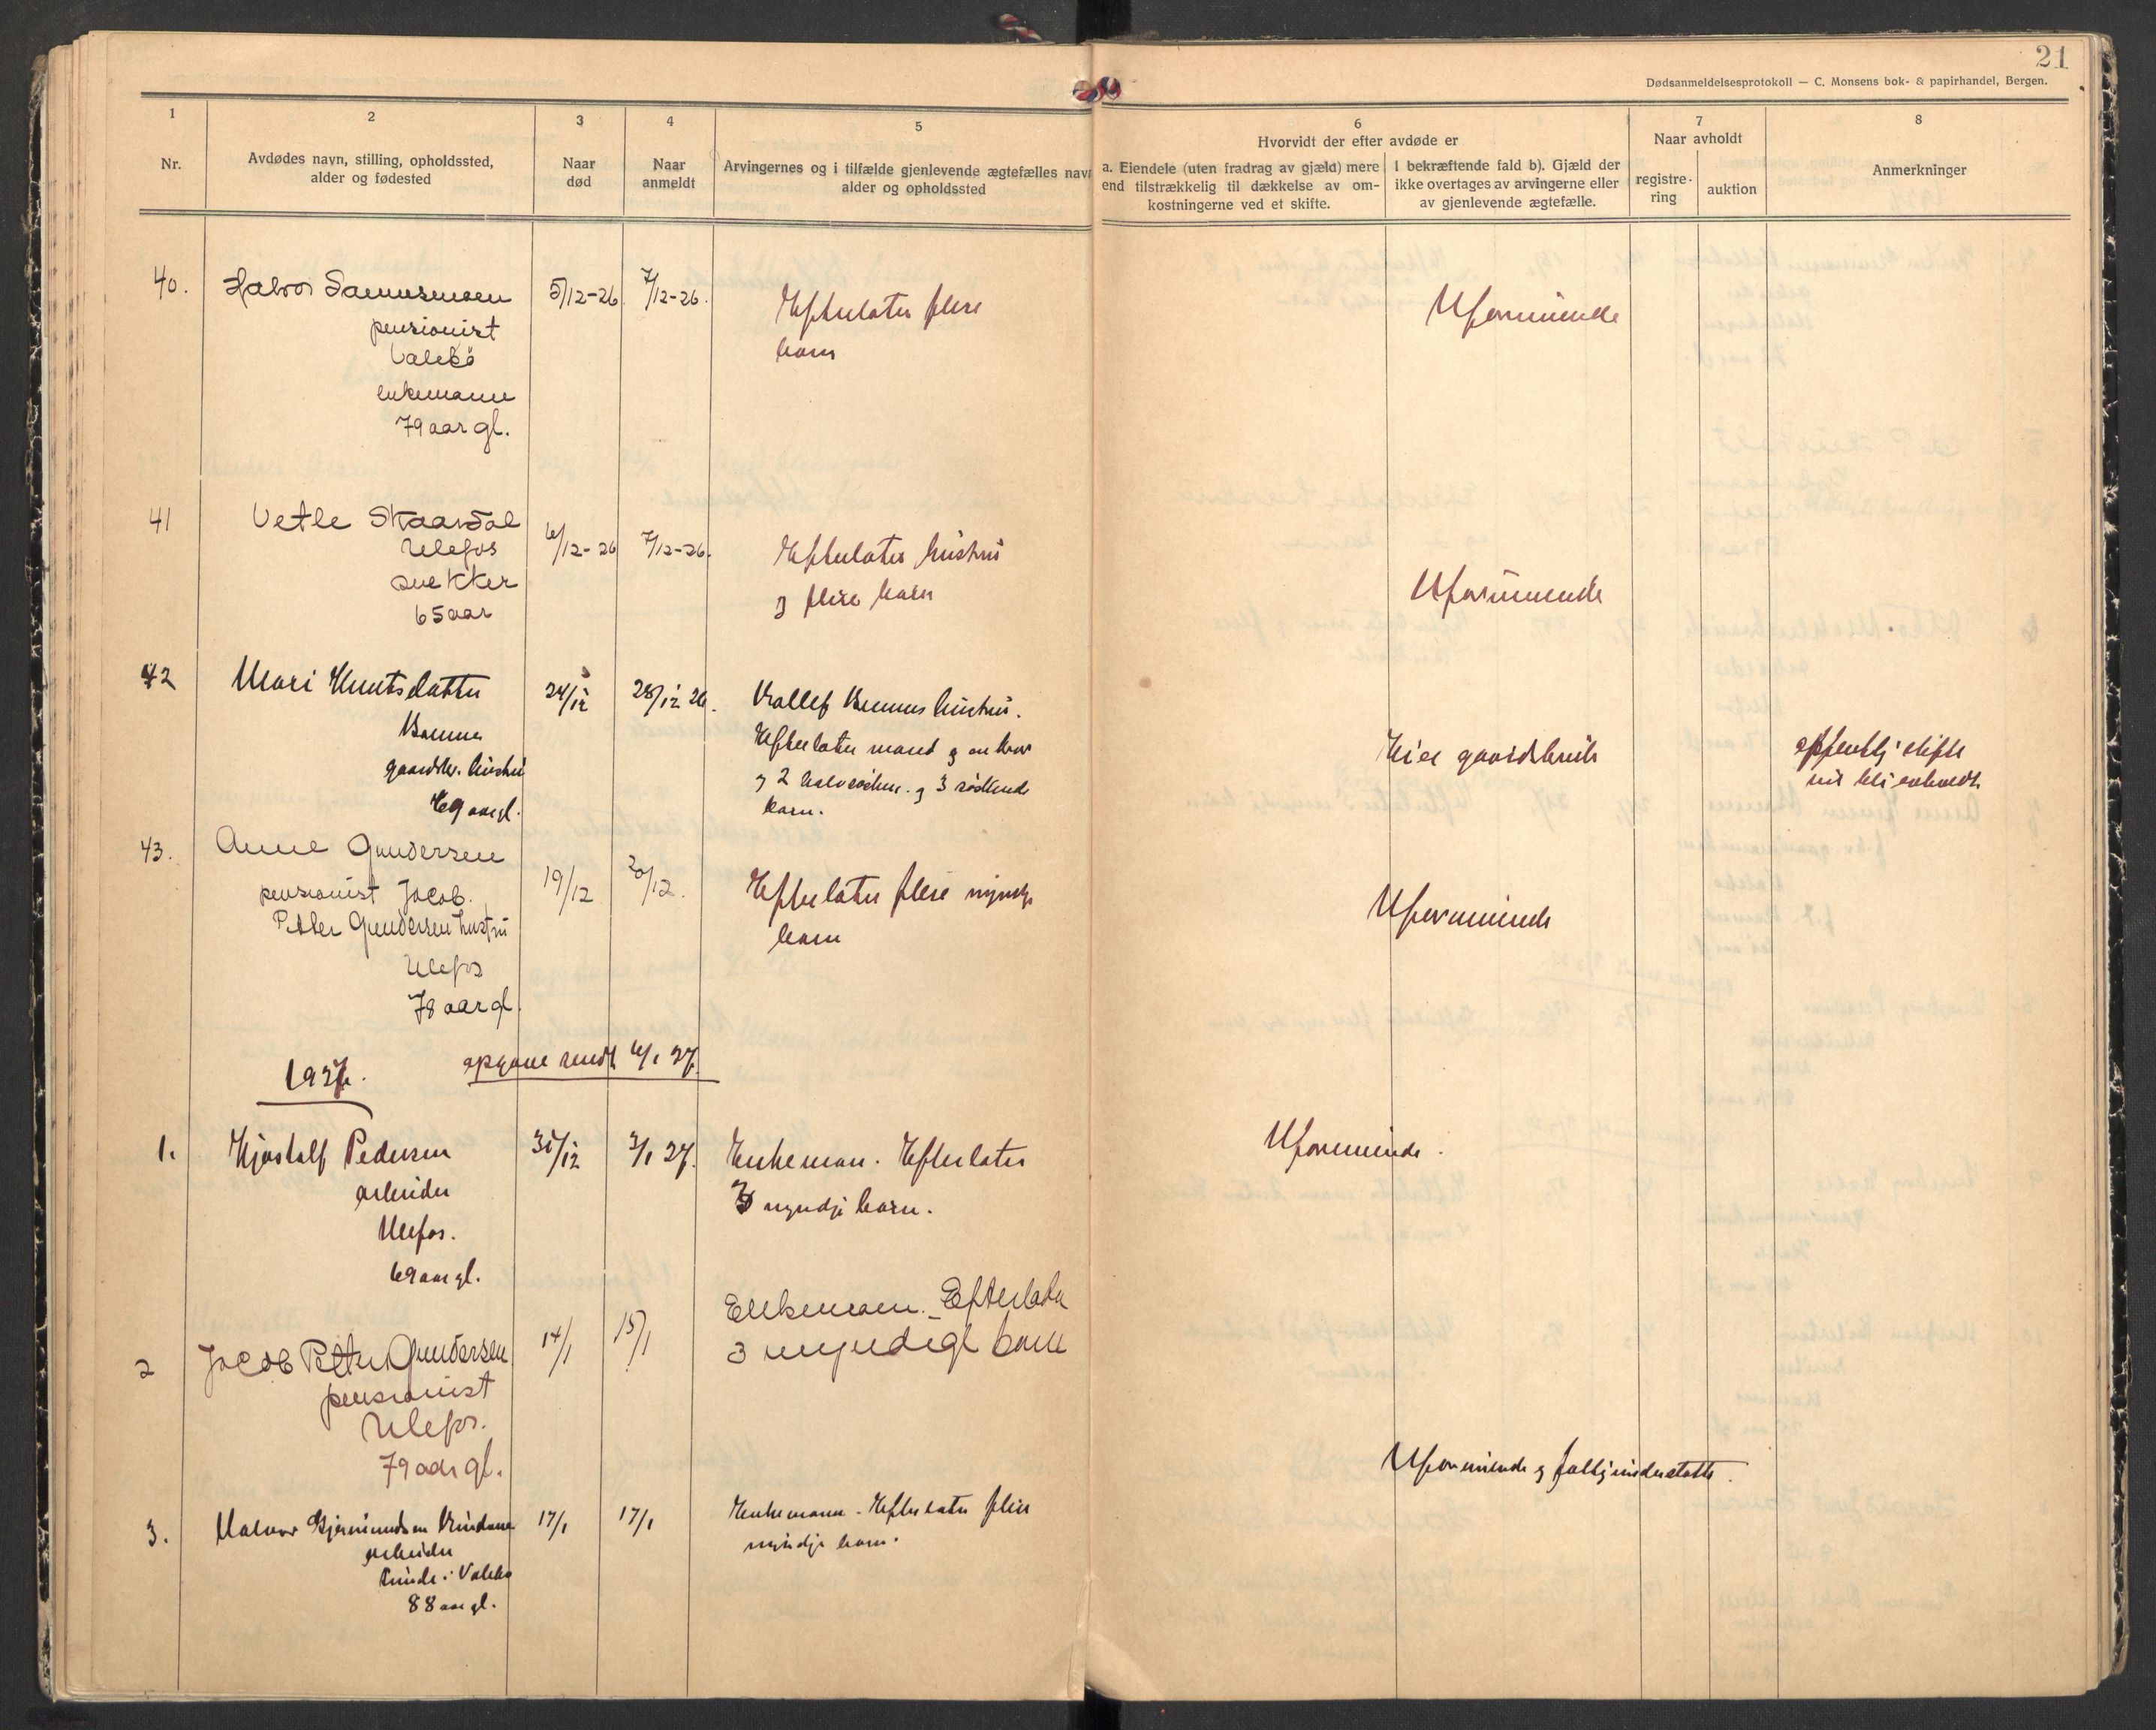 21
Dødsanmeldelsesprotokoll — C. Monsens bok- & papirhandel, Bergen.
1
Nr.
2
Avdødes navn, stilling, opholdssted,
alder og fødested
3
Naar
død
4
Naar
anmeldt
5
Arvingernes og i tilfælde gjenlevende ægtefælles navn
alder og opholdssted
6
Hvorvidt der efter avdøde er
a. Eiendele (uten fradrag av gjæld) mere
end tilstrækkelig til dækkelse av om-
kostningerne ved et skifte.
I bekræftende fald b). Gjæld der
ikke overtages av arvingerne eller
av gjenlevende ægtefælle.
7
Naar avholdt
registre-
ring
auktion
8
Anmerkninger
40.
Halvor Samuelsen
pensionist
Valebø
enkemann
79 aar gl.
5/12-26
7/12-26.
Efterlater flere
barn
Uformuende
41
Vetle Skaardal
Ulefos
snekker
65 aar
6/12-26
7/12-26.
Efterlater hustru
og flere barn
Uformuende
42
Mari Knutsdatter
gaardbr. hustru
69 aar gl.
24/12
28/12 26.
hustru.
Efterlater mand og en bror
og 2 halvsøsken og 3 søskende
barn.
Eier gaardsbruk
offentlig skifte
vil bli avholdt
43.
Anne Gundersen
pensionist Jacob
Petter Gundersen hustru
Ulefos
78 aar gl.
19/12
20/12.
Efterlater flere myndige
barn
Uformuende
1927.
opgave sendt 6/1 27.
1.
Kjøstolf Pedersen
arbeider
Ulefos.
69 aar gl.
31/12
3/1 27.
Enkeman. Efterlater
3 myndige barn.
Uformuende.
2
Jacob Petter Gundersen
pensionist
Ulefos.
79 aar gl.
14/1
15/1
Enkemann. Efterlater
3 myndige barn
3.
Halvor Gjermundsen
arbeider
Valebø
88 aar gl.
17/1
17/1
Enkemann - Efterlater flere
myndige barn.
Uformuende og fattigunderstøttet.